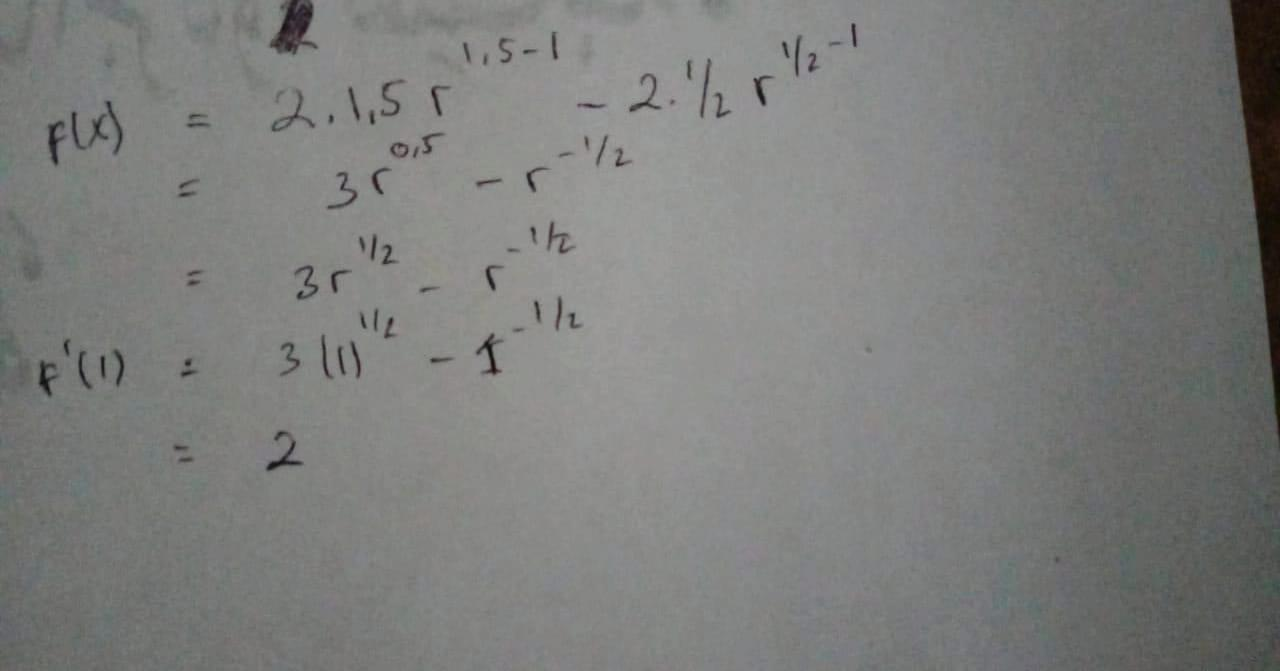 F(x) = 2.1,5 r^1,5-1 - 2.1/2 r^1/2-1
= 3r^0,5 - r^-1/2
= 3r^1/2 - r^-1/2
F'(1) = 3(1)^1/2 - 1^-1/2
= 2